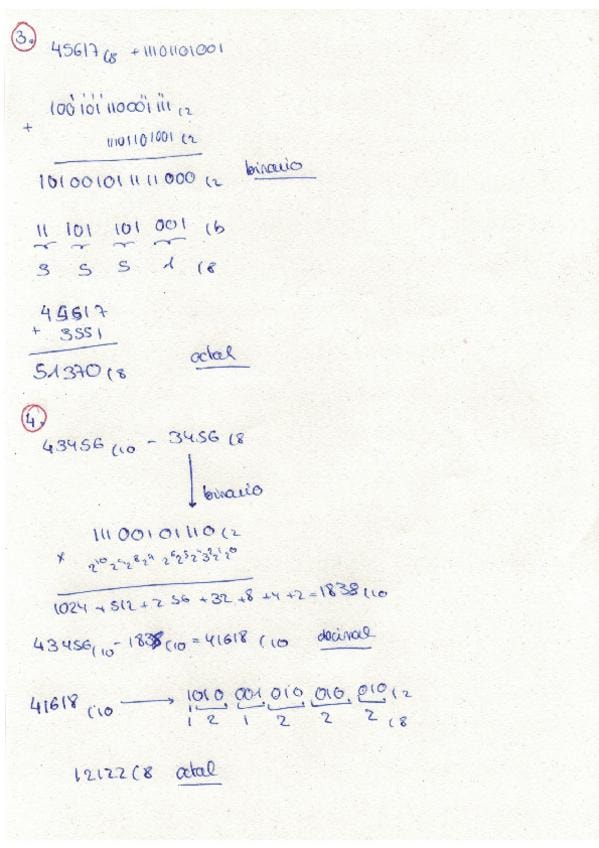 3.
45617(8 + 11101101001
100101110001111(2
+
11101101001(2
101001011111000(2 binario
11 101 101 001 (b
3 5 5 1 (8
45617
+ 3551
51370(8 octal
4.
43456(10 - 3456(8
binario
11100101110(2
x
1024 + 512 + 256 + 32 + 8 + 4 + 2 = 1838(10
43456(10 - 1838(10 = 41618(10 decimal
41618(10 → 1010 001 010 010 010(2
1 2 1 2 2 2 (8
12122(8 octal